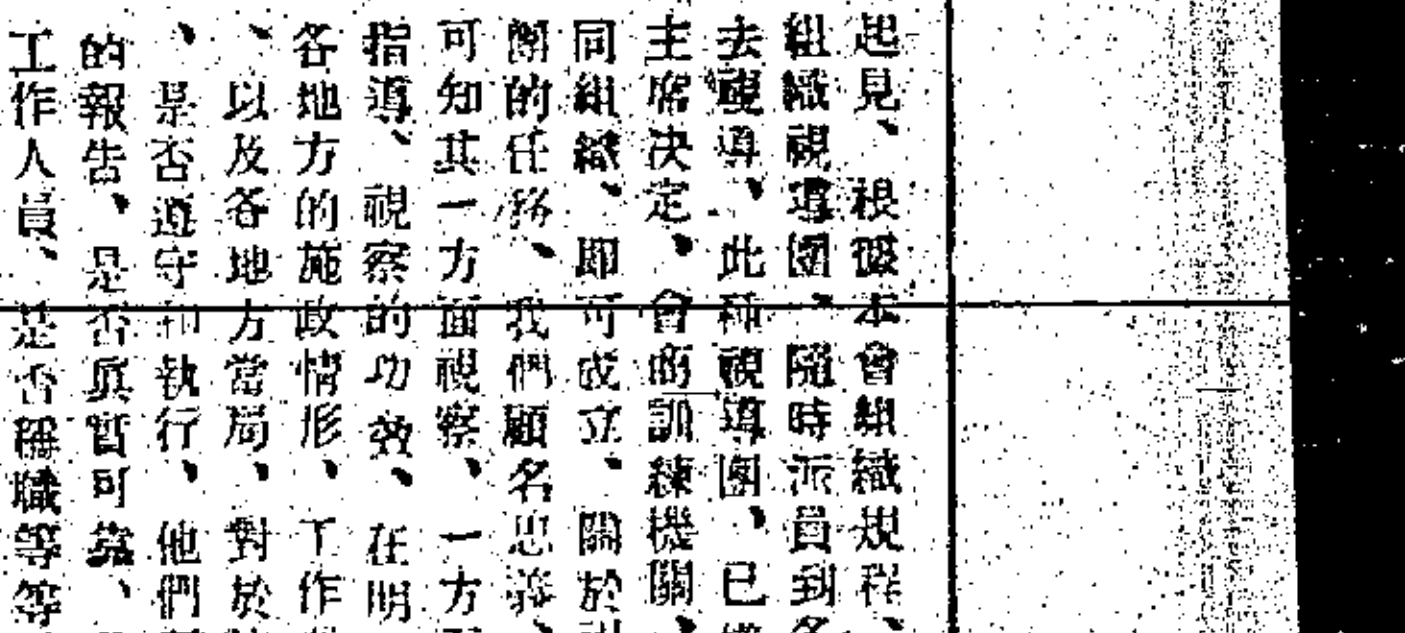 起見、根據本會組織規程、
組織視導團、隨時派員到各
去視導、此種視導團、已
主席決定、會商訓練機關、
同組織、即可成立、關於
團的任務、我們顧名思義、
可知其一方面視察、一方
指導、視察的功效、在明
各地方的施政情形、工作
、以及各地方當局、對於
、是否遵守和執行、他們
的報告、是否眞實可靠、
工作人員、是否稱職等等